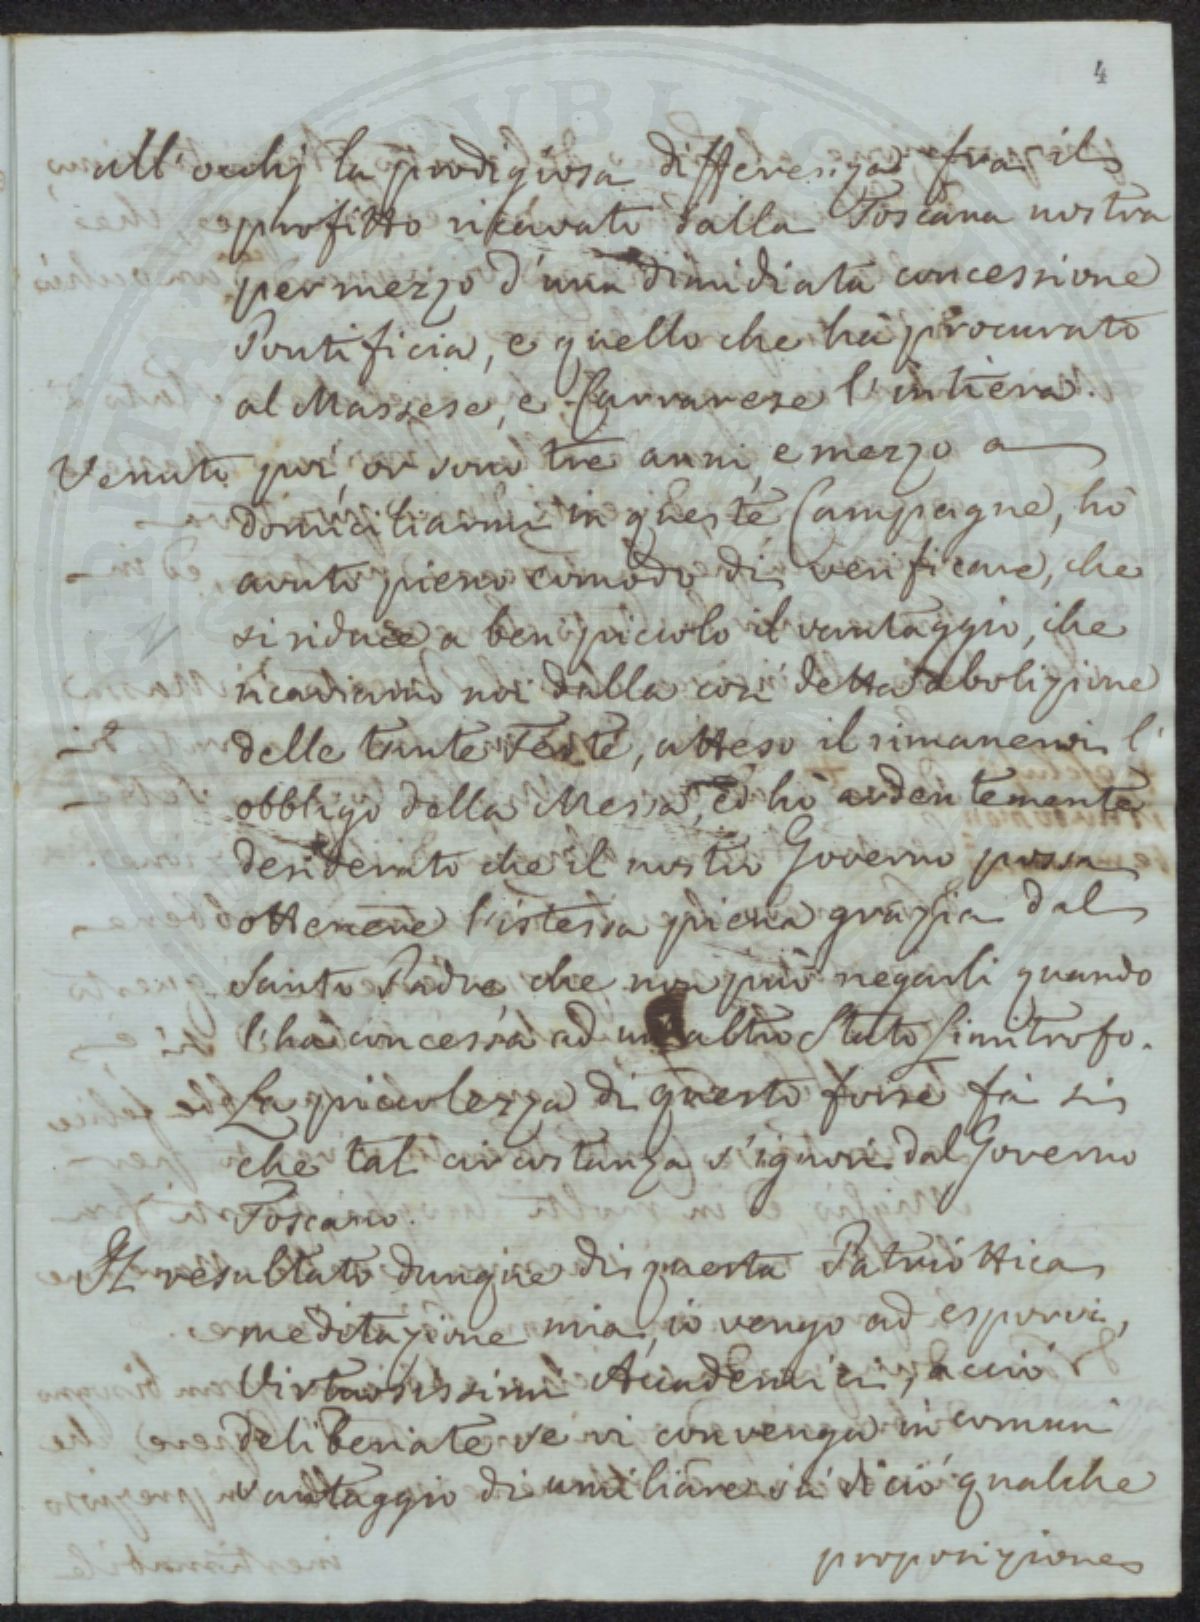 4
all'occhj la prodigiosa differenza fra il
profitto ricavato dalla Toscana nostra
per mezzo d'una dimidiata concessione
Pontificia, e quello che ha procurato
al Massese, e Carrarese l'intiera.
Venuto poi, or sono tre anni, e mezzo a
domiciliarmi in queste Campagne, hò
avuto pieno comodo di verificare, che
si riduce a ben picciolo il vantaggio, che
ricaviamo noi dalla così detta abolizione
delle tante Feste, atteso il rimanervi l'
obbligo della Messa, ed hò ardentemente
desiderato che il nostro Governo possa
ottenere l'istessa piena grazia dal
Santo Padre, che non può negarli quando
l'ha concessa ad un altro Stato Limitrofo.
La picciolezza di questo forse fà sì
che tal circostanza s'ignori dal Governo
Toscano.
Il resultato dunque di questa Patriottica
meditazione mia, io vengo ad esporvi,
Virtuosissimi Accademici, acciò
deliberiate se vi convenga in comun
vantaggio di umiliare su di ciò qualche
proposizione